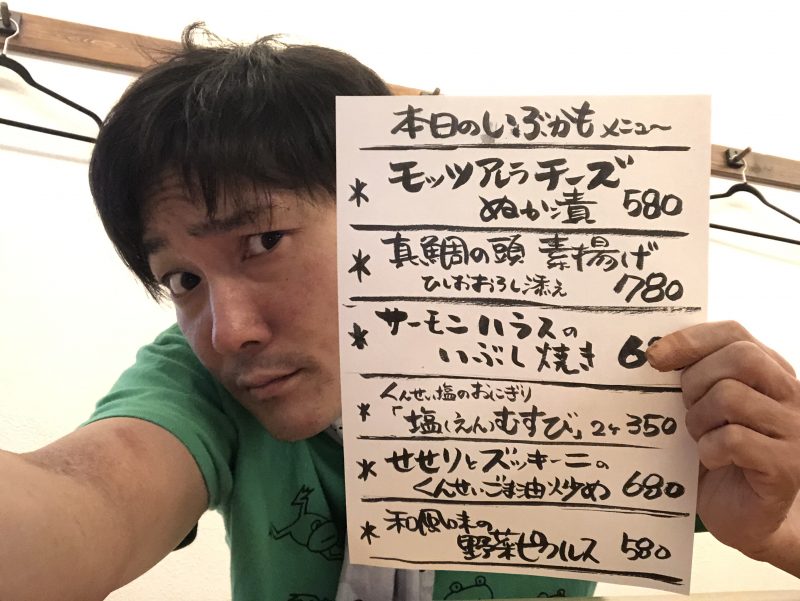 本日のいぶかもメニュー
* モッツアレラチーズ
ぬか漬 580
* 真鯛の頭 素揚げ
ひしおおろし添え 780
* サーモンハラスの
いぶし焼き
* くんせい塩のおにぎり
「塩(えん)むすび」2ヶ 350
* せせりとズッキーニの
くんせいごま油炒め 680
* 和風味の
野菜ピクルス 580